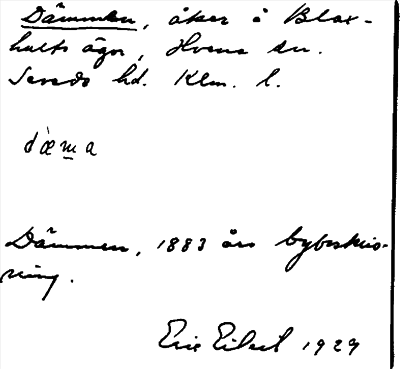 Dämmen, åker å Blax-
hults ägor, Hvena sn.
Sevede hd. Klm. l.
dæ̀ma
Dämmen, 1883 års bybeskriv-
ning.
Eric Eilert 1929